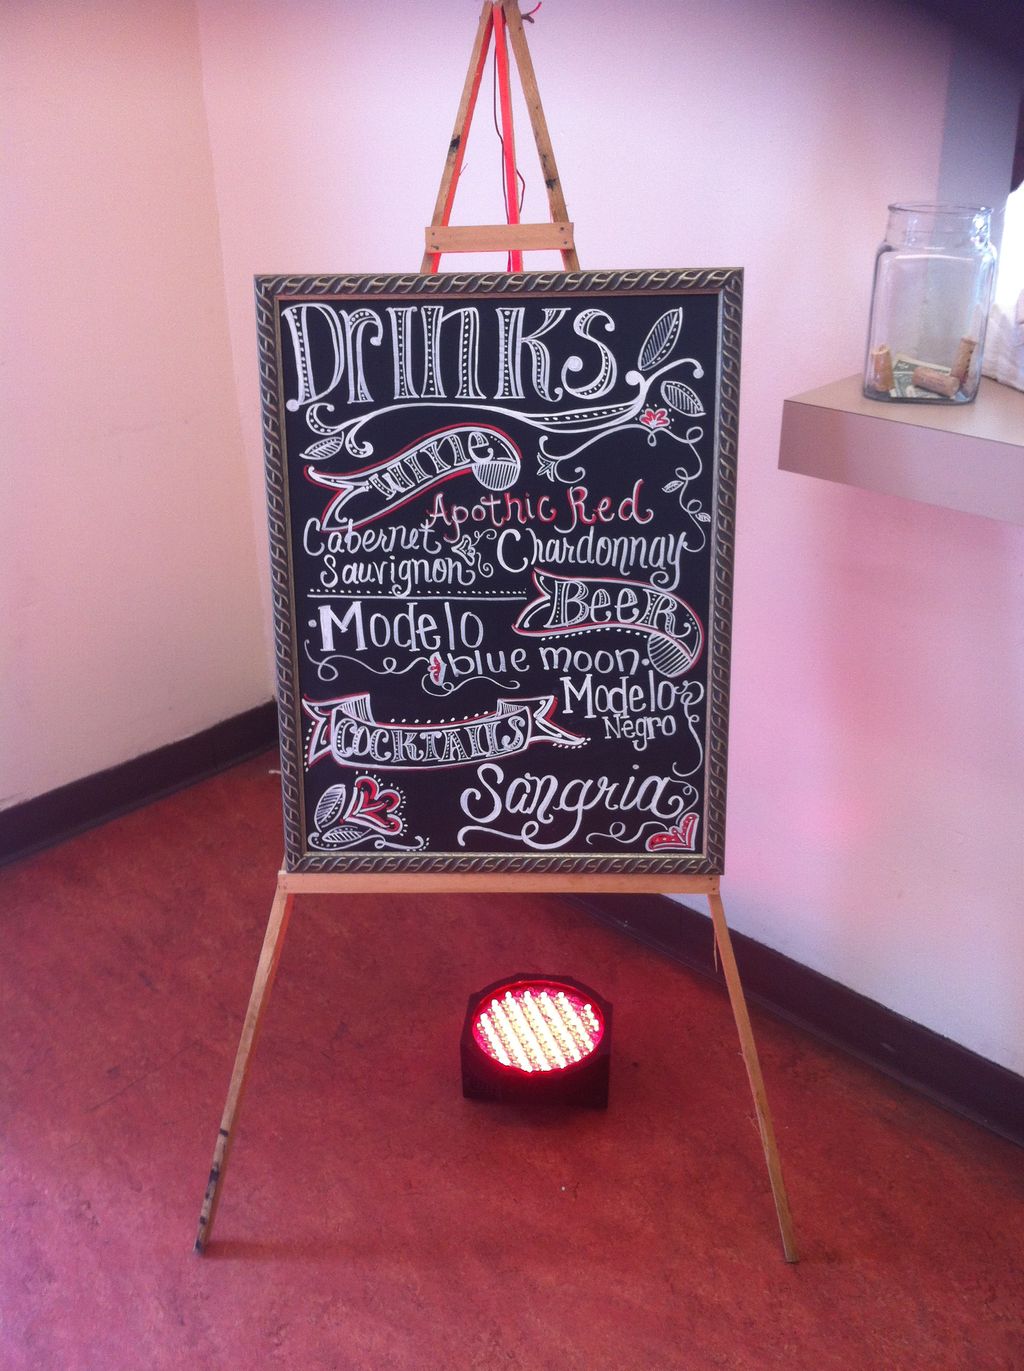 Drinks
Wine
Apothic Red
Cabernet Sauvignon
Chardonnay
Beer
Modelo
blue moon
Modelo Negro
Cocktails
Sangria